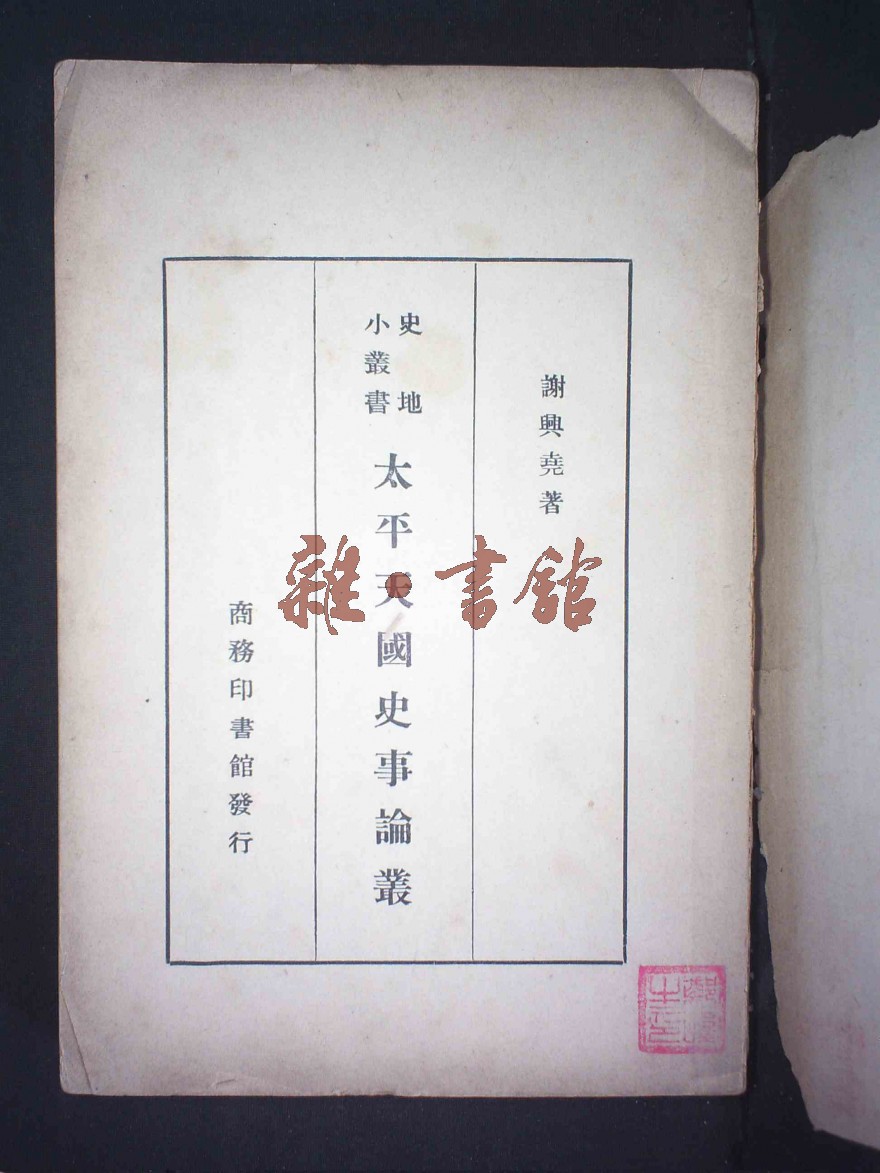 謝興堯著
史地
小叢書
太平天國史事論叢
商務印書館發行
雜·書館